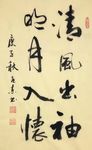 清風出袖
明月入懷
庚子秋